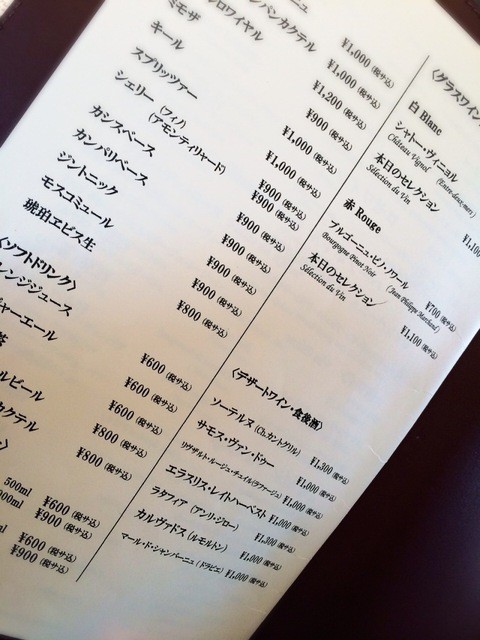 ニュ
ンパンカクテル ¥1,000 (税サ込)
ロワイヤル ¥1,000 (税サ込)
ミモザ ¥1,200 (税サ込)
キール ¥900 (税サ込)
スプリッツァー ¥1,000 (税サ込)
シェリー (フィノ) ¥1,000 (税サ込)
(アモンティリャード) ¥900 (税サ込)
カシスベース ¥900 (税サ込)
カンパリベース ¥900 (税サ込)
ジントニック ¥900 (税サ込)
モスコミュール ¥900 (税サ込)
琥珀ヱビス生 ¥800 (税サ込)
〈ソフトドリンク〉
レンジジュース ¥600 (税サ込)
ジャーエール ¥600 (税サ込)
茶 ¥600 (税サ込)
ルビール ¥800 (税サ込)
カクテル ¥800 (税サ込)
500ml ¥600 (税サ込)
900ml ¥900 (税サ込)
ml ¥600 (税サ込)
¥900 (税サ込)
〈グラスワイン
白 Blanc
シャトー・ヴィニョル
Château Vignol (Entre-deux-mers)
本日のセレクション ¥1,100
Sélection du Vin
赤 Rouge
ブルゴーニュ・ピノ・ノワール ¥700 (税サ込)
Bourgogne Pinot Noir (Jean Philippe Marchand)
本日のセレクション ¥1,100 (税サ込)
Sélection du Vin
〈デザートワイン・食後酒〉
ソーテルヌ (Ch.カントグリル) ¥1,300 (税サ込)
サモス・ヴァン・ドゥー ¥1,000 (税サ込)
リヴザルト・ルージュ・チュイレ(ラファージュ) ¥1,000 (税サ込)
エラスリス・レイトハーベスト ¥1,300 (税サ込)
ラタフィア (アンリ・ジロー) ¥1,000 (税サ込)
カルヴァドス (ルモルトン) ¥1,000 (税サ込)
マール・ド・シャンパーニュ (ドラピエ) ¥1,000 (税サ込)